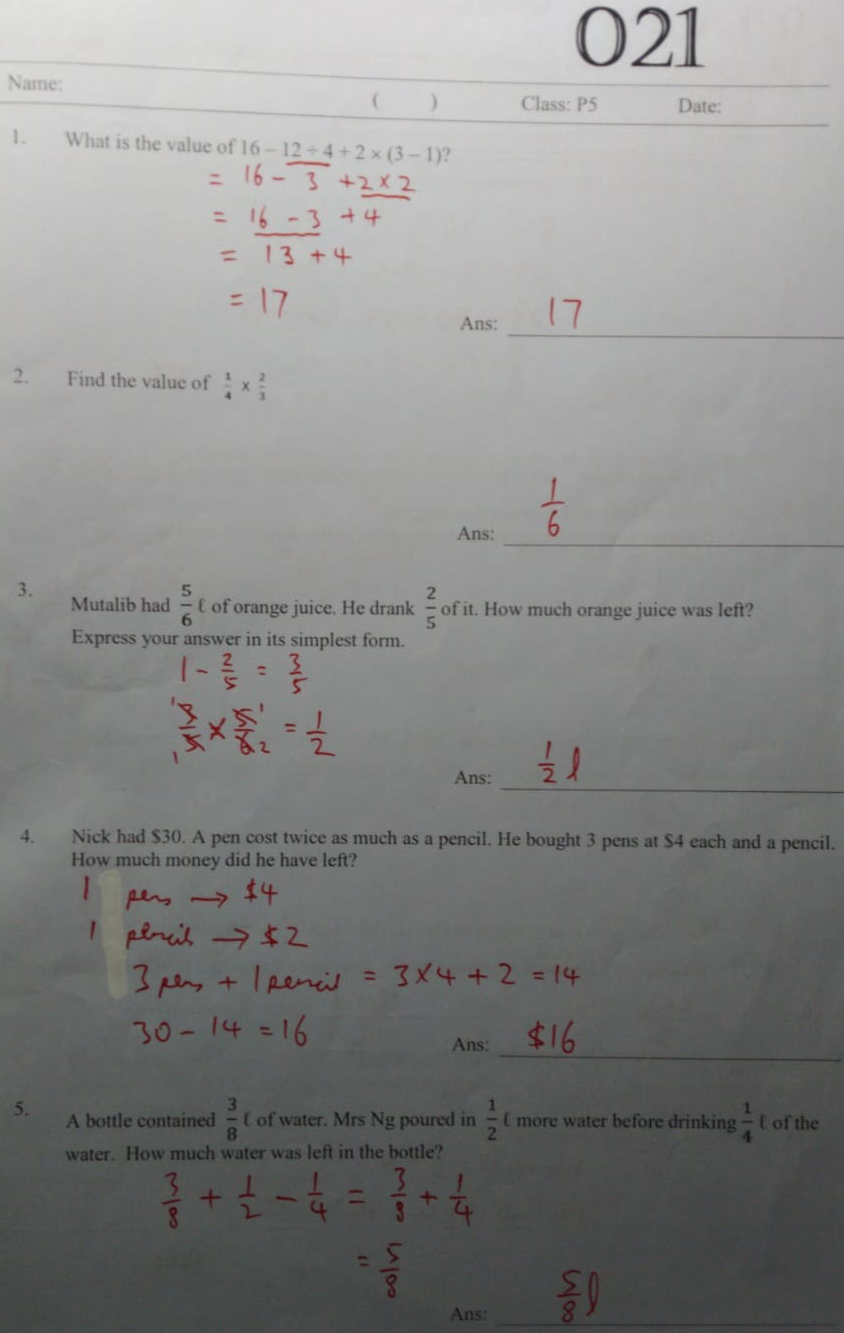 021
Name: ( ) Class: P5 Date:
1. What is the value of 16 – 12 ÷ 4 + 2 × (3 – 1)?
= 16 - 3 + 2 × 2
= 16 - 3 + 4
= 13 + 4
= 17
Ans: 17
2. Find the value of 1/4 x 2/3
Ans: 1/6
3. Mutalib had 5/6 ℓ of orange juice. He drank 2/5 of it. How much orange juice was left?
Express your answer in its simplest form.
1 - 2/5 = 3/5
3/5 × 5/6 = 1/2
Ans: 1/2 l
4. Nick had $30. A pen cost twice as much as a pencil. He bought 3 pens at $4 each and a pencil.
How much money did he have left?
1 pens → $4
1 pencil → $2
3 pens + 1 pencil = 3 × 4 + 2 = 14
30 - 14 = 16
Ans: $16
5. A bottle contained 3/8 ℓ of water. Mrs Ng poured in 1/2 ℓ more water before drinking 1/4 ℓ of the
water. How much water was left in the bottle?
3/8 + 1/2 - 1/4 = 3/8 + 1/4
= 5/8
Ans: 5/8 l